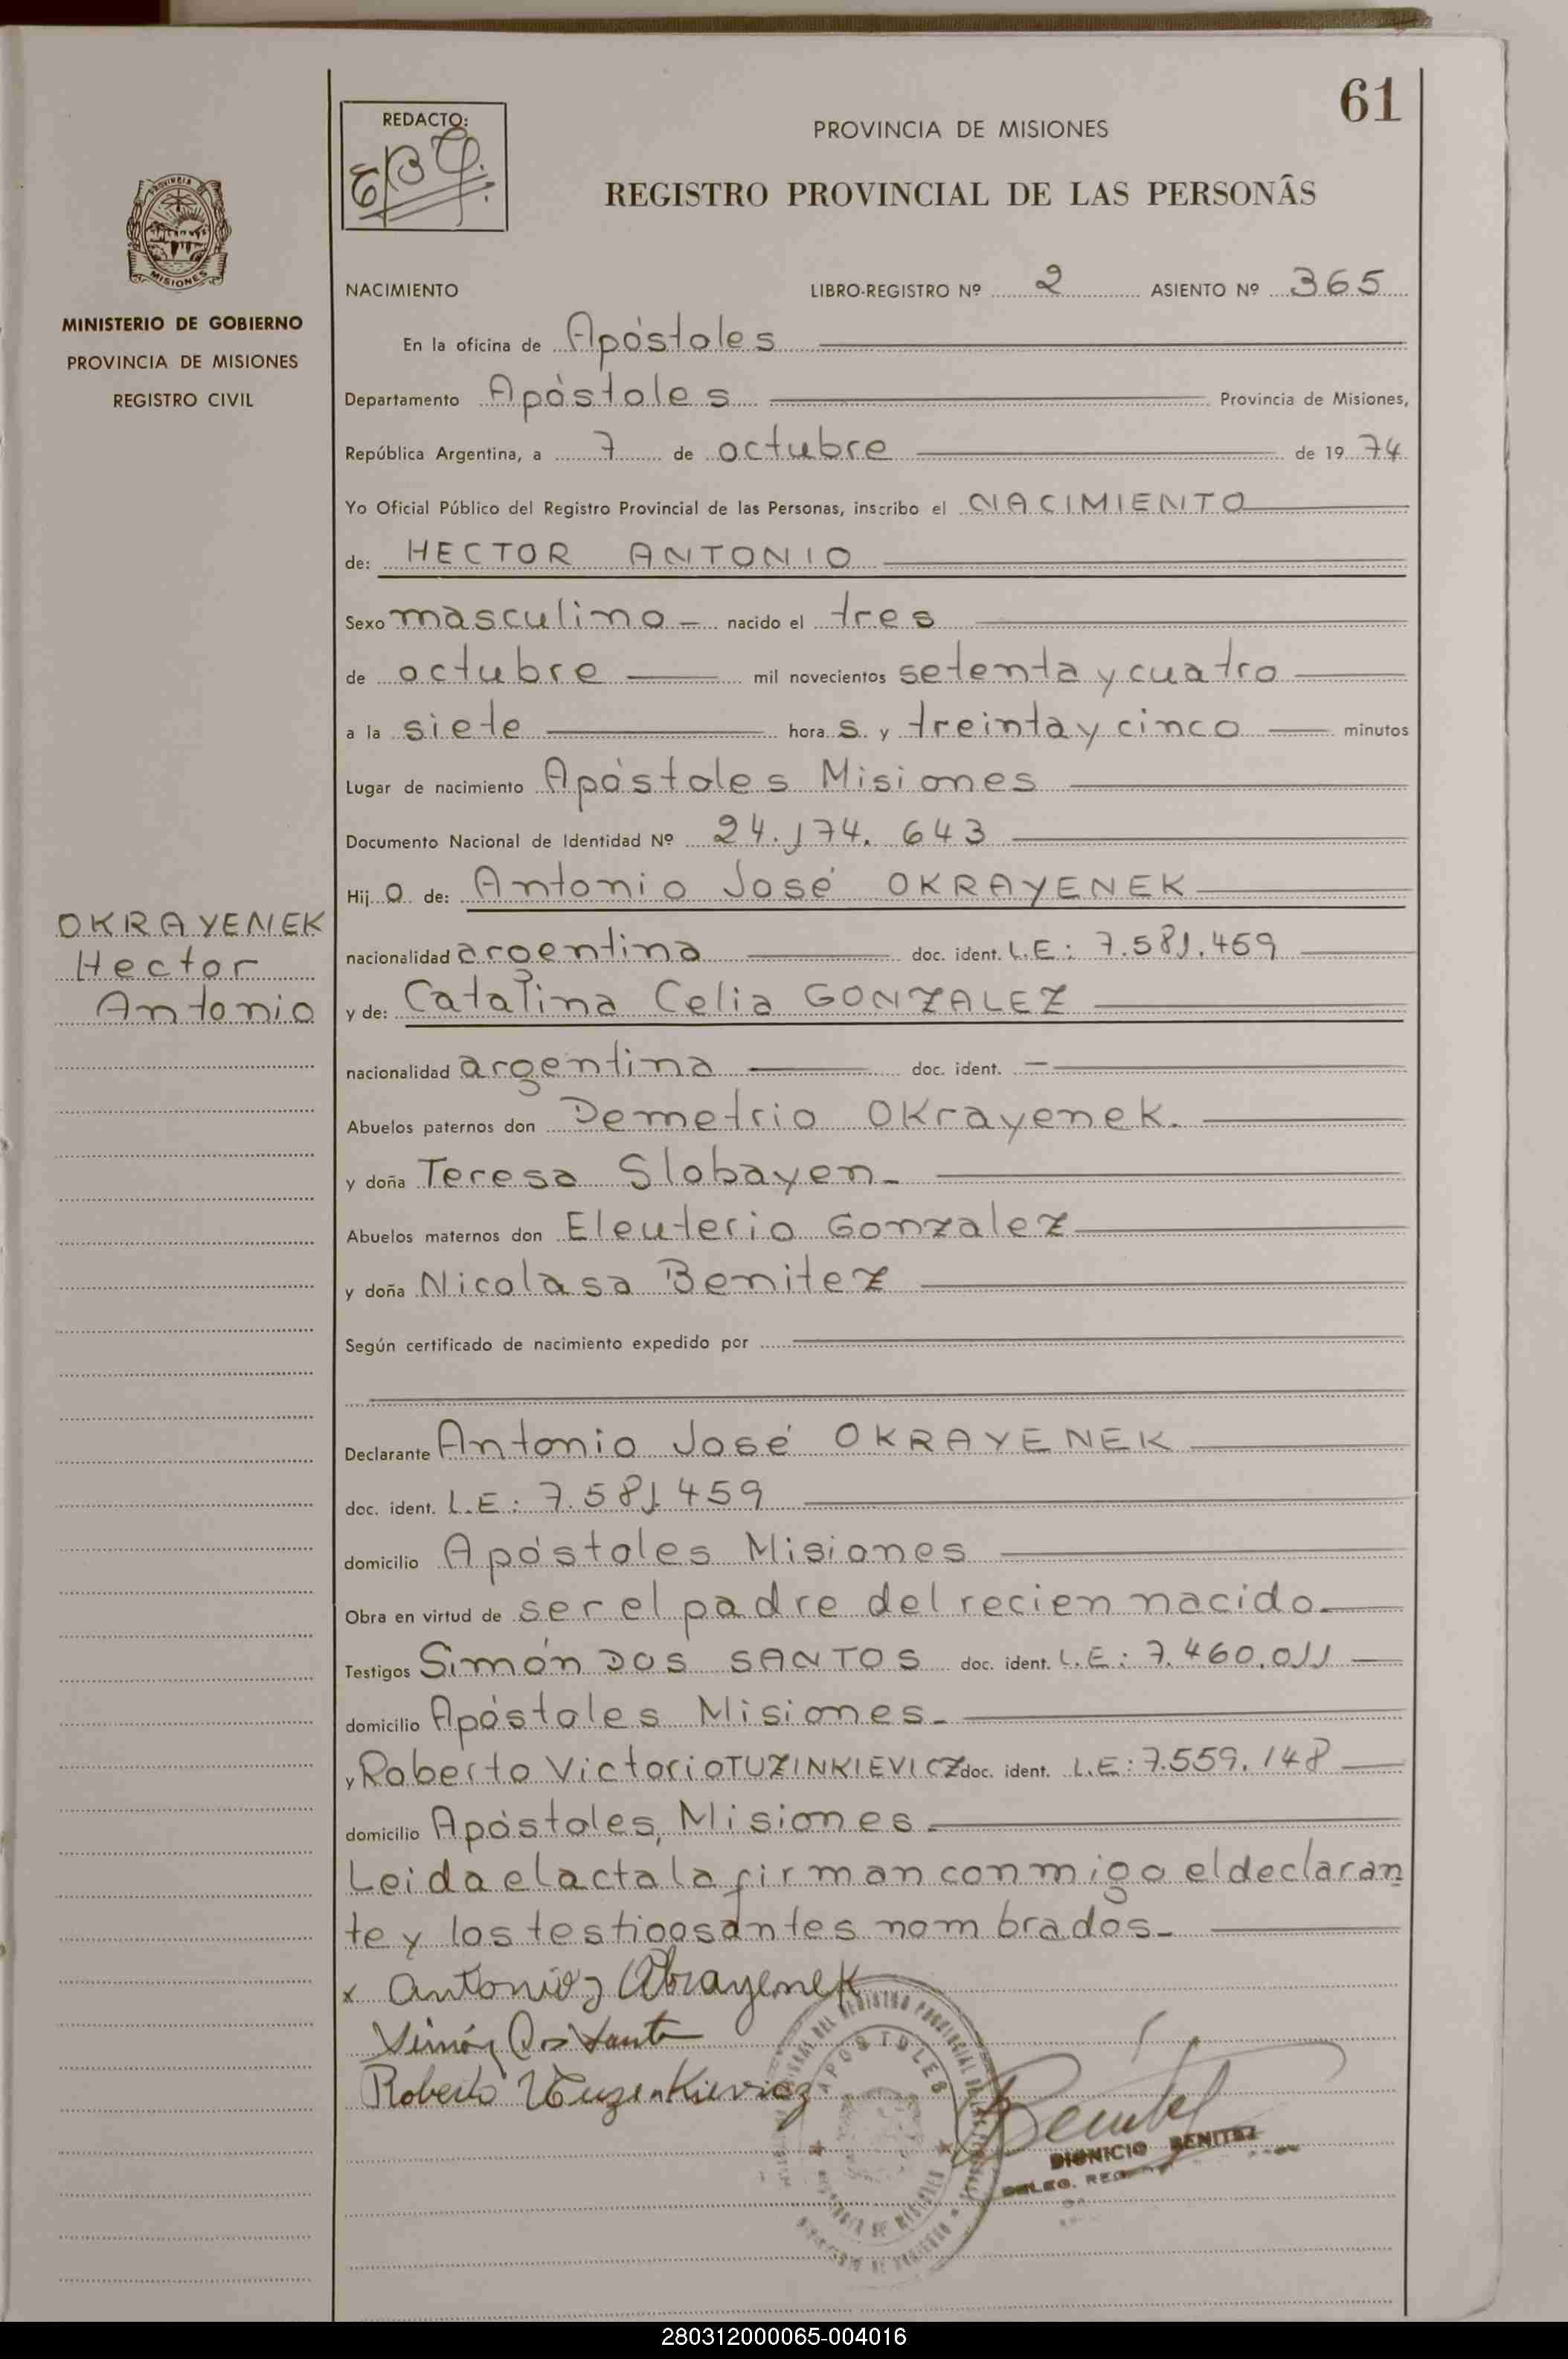 61
REDACTO:
PROVINCIA DE MISIONES
REGISTRO PROVINCIAL DE LAS PERSONAS
PROVINCIA
MISIONES
MINISTERIO DE GOBIERNO
PROVINCIA DE MISIONES
REGISTRO CIVIL
NACIMIENTO LIBRO-REGISTRO Nº 2 ASIENTO Nº 365
En la oficina de Apóstoles
Departamento Apóstoles Provincia de Misiones,
República Argentina, a 7 de octubre de 1974
Yo Oficial Público del Registro Provincial de las Personas, inscribo el NACIMIENTO
de: HECTOR ANTONIO
Sexo masculino - nacido el tres
de octubre mil novecientos setenta y cuatro
a la siete hora s. y treinta y cinco minutos
Lugar de nacimiento Apóstoles Misiones
Documento Nacional de Identidad Nº 24.174.643
Hijo de: Antonio José OKRAYENEK
OKRAYENEK
Hector
Antonio
nacionalidad argentina doc. ident. L.E: 7.581.459
y de: Catalina Celia GONZALEZ
nacionalidad argentina doc. ident. —
Abuelos paternos don Demetrio Okrayenek.
y doña Teresa Slobayen-
Abuelos maternos don Eleuterio Gonzalez
y doña Nicolasa Benitez
Según certificado de nacimiento expedido por
Declarante Antonio José OKRAYENEK
doc. ident. L.E: 7.581.459
domicilio Apóstoles Misiones
Obra en virtud de ser el padre del recien nacido.
Testigos Simón DOS SANTOS doc. ident. L.E: 7.460.011
domicilio Apóstoles Misiones-
y Roberto Victorio TUZINKIEVICZ doc. ident. L.E: 7.559.148
domicilio Apóstoles, Misiones
Leida el acta la firman conmigo el declaran
te y los testigos antes nombrados-
x Antonio J Okrayenek
Simón Dos Santo
Roberto Tuzenkievicz
APOSTOLES
Benitez
DIONICIO BENITEZ
DELEG. REG.
280312000065-004016